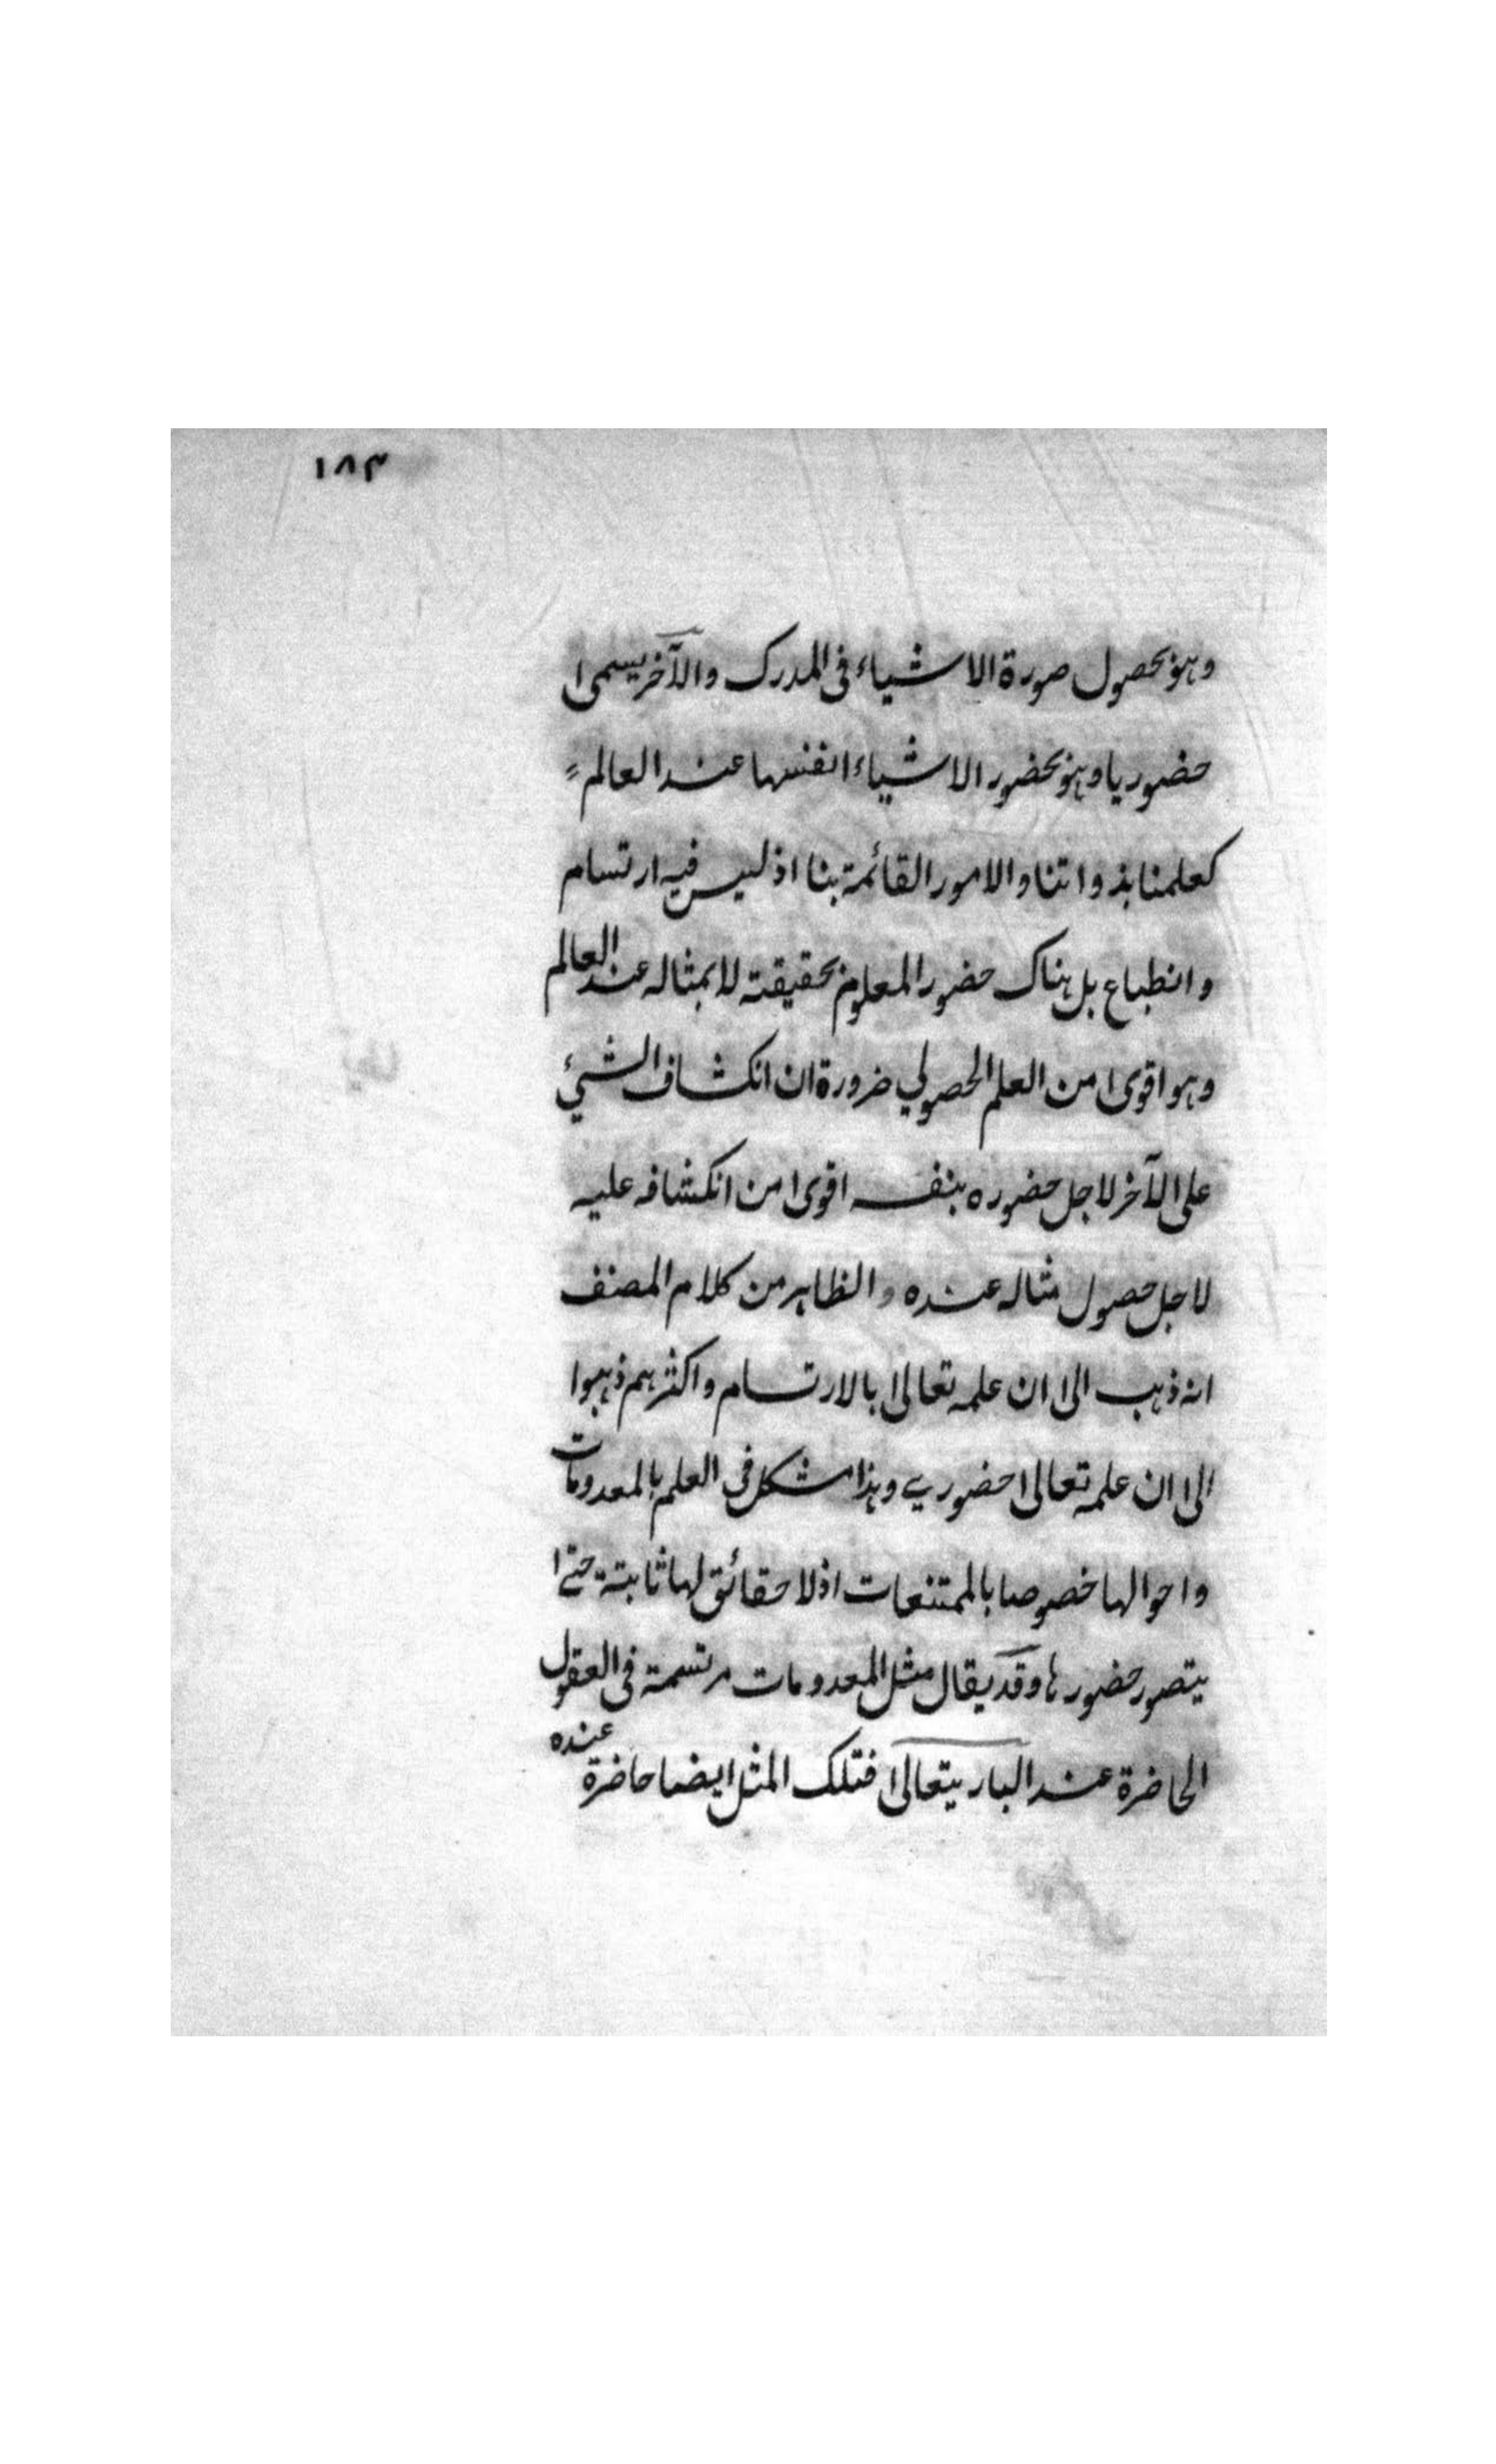 ١٨٣
وهو بحصول صورة الاشياء فى المدرك والآخر يسمى
حضوريا وهو بحضور الاشياء انفسها عند العالم
كعلمنا بذواتنا والامور القائمة بنا اذ ليس فيه ارتسام
وانطباع بل هناك حضور المعلوم بحقيقته لا بمثاله عند العالم
وهو اقوى من العلم الحصولي ضرورة ان انكشاف الشيئ
على الآخر لاجل حضوره بنفسه اقوى من انكشافه عليه
لاجل حصول مثاله عنده والظاهر من كلام المصنف
انه ذهب الى ان علمه تعالى بالارتسام واكثرهم ذهبوا
الى ان علمه تعالى حضوري وهذا مشكل فى العلم بالمعدومات
واحوالها خصوصا بالممتنعات اذ لا حقائق لها ثابتة حتى
يتصور حضورها وقد يقال مثل المعدومات مرتسمة فى العقول
الحاضرة عند الباريتعالى فتلك المثل ايضا حاضرة عنده